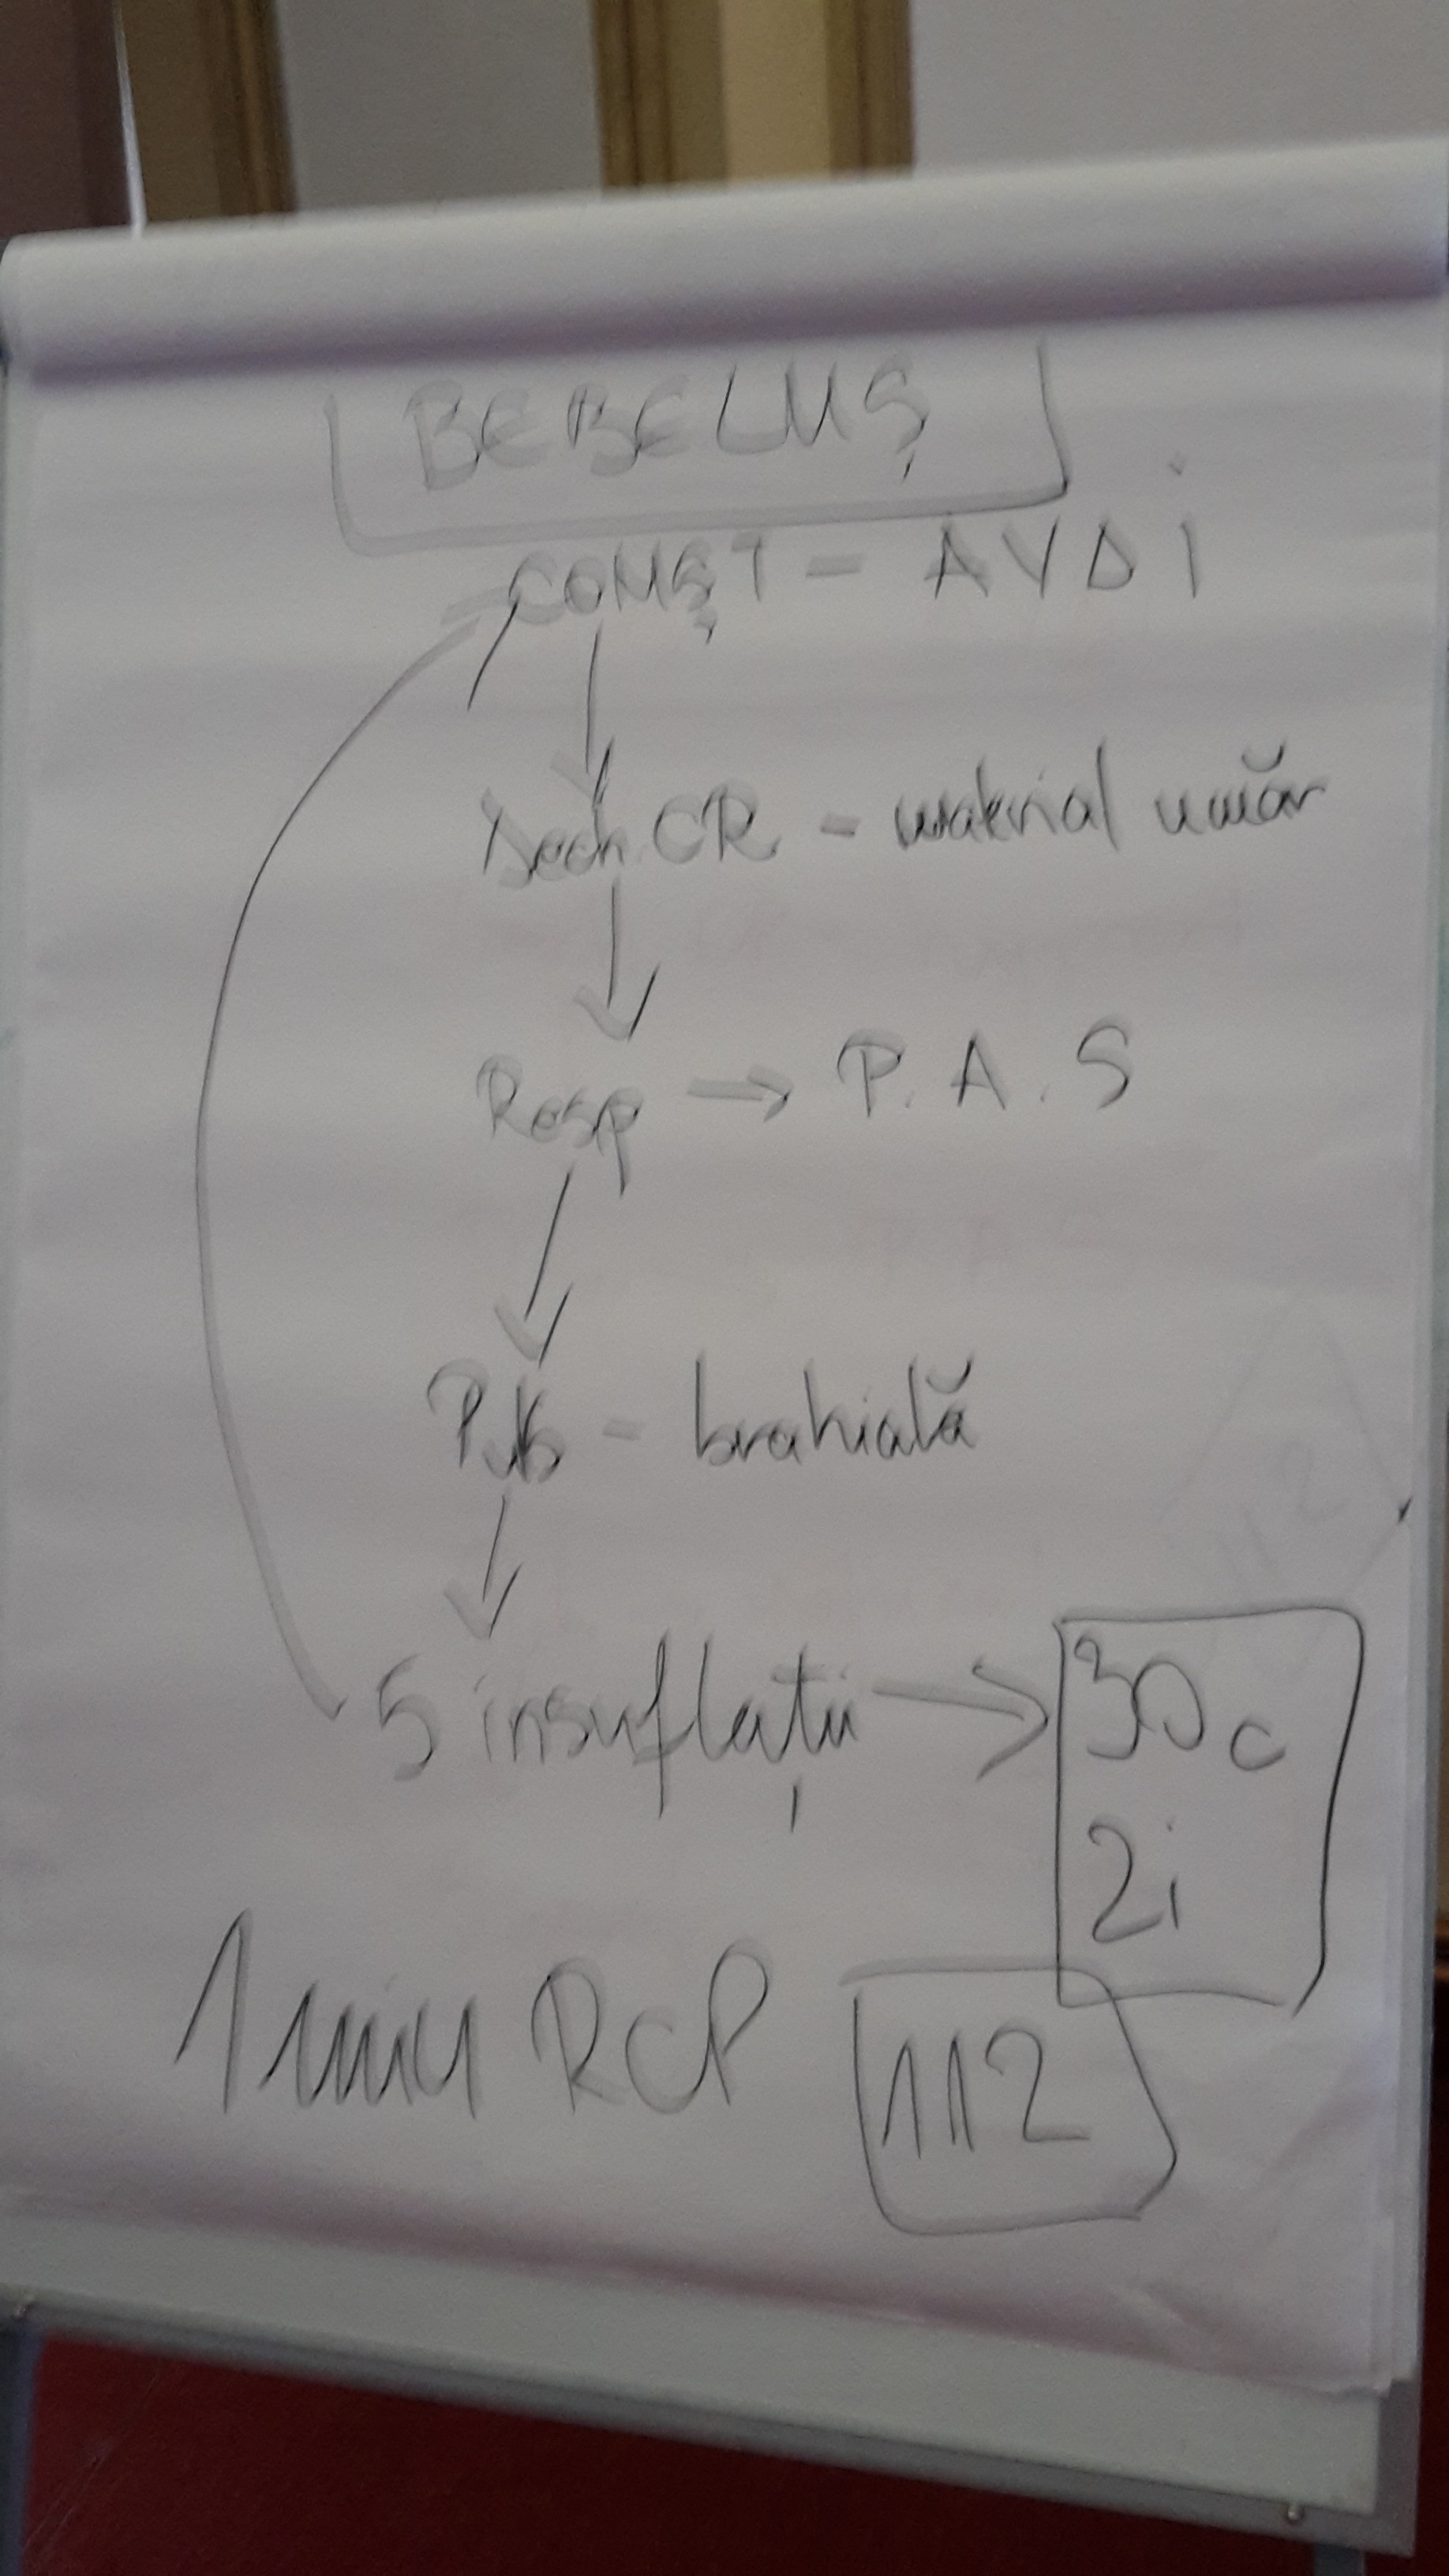 BEBELUȘ
CONȘT - AVDI
Desch. CR - material umăr
Resp → P.A.S
Puls - brahială
5 insuflații → 30c
2i
1 min RCP 112